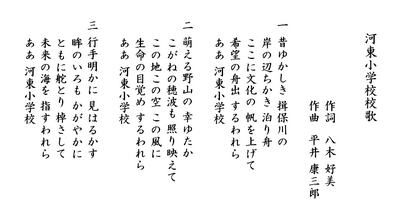 河東小学校校歌
作詞 八木 好美
作曲 平井 康三郎
一 昔ゆかしき 揖保川の
岸の辺ちかき 泊り舟
ここに文化の 帆を上げて
希望の舟出 するわれら
ああ 河東小学校
二 萌える野山の 幸ゆたか
こがねの穂波も 照り映えて
この地この空 この風に
生命の目覚め するわれら
ああ 河東小学校
三 行手明かに 見はるかす
眸のいろも かがやかに
ともに舵とり 棹さして
未来の海を 指すわれら
ああ 河東小学校